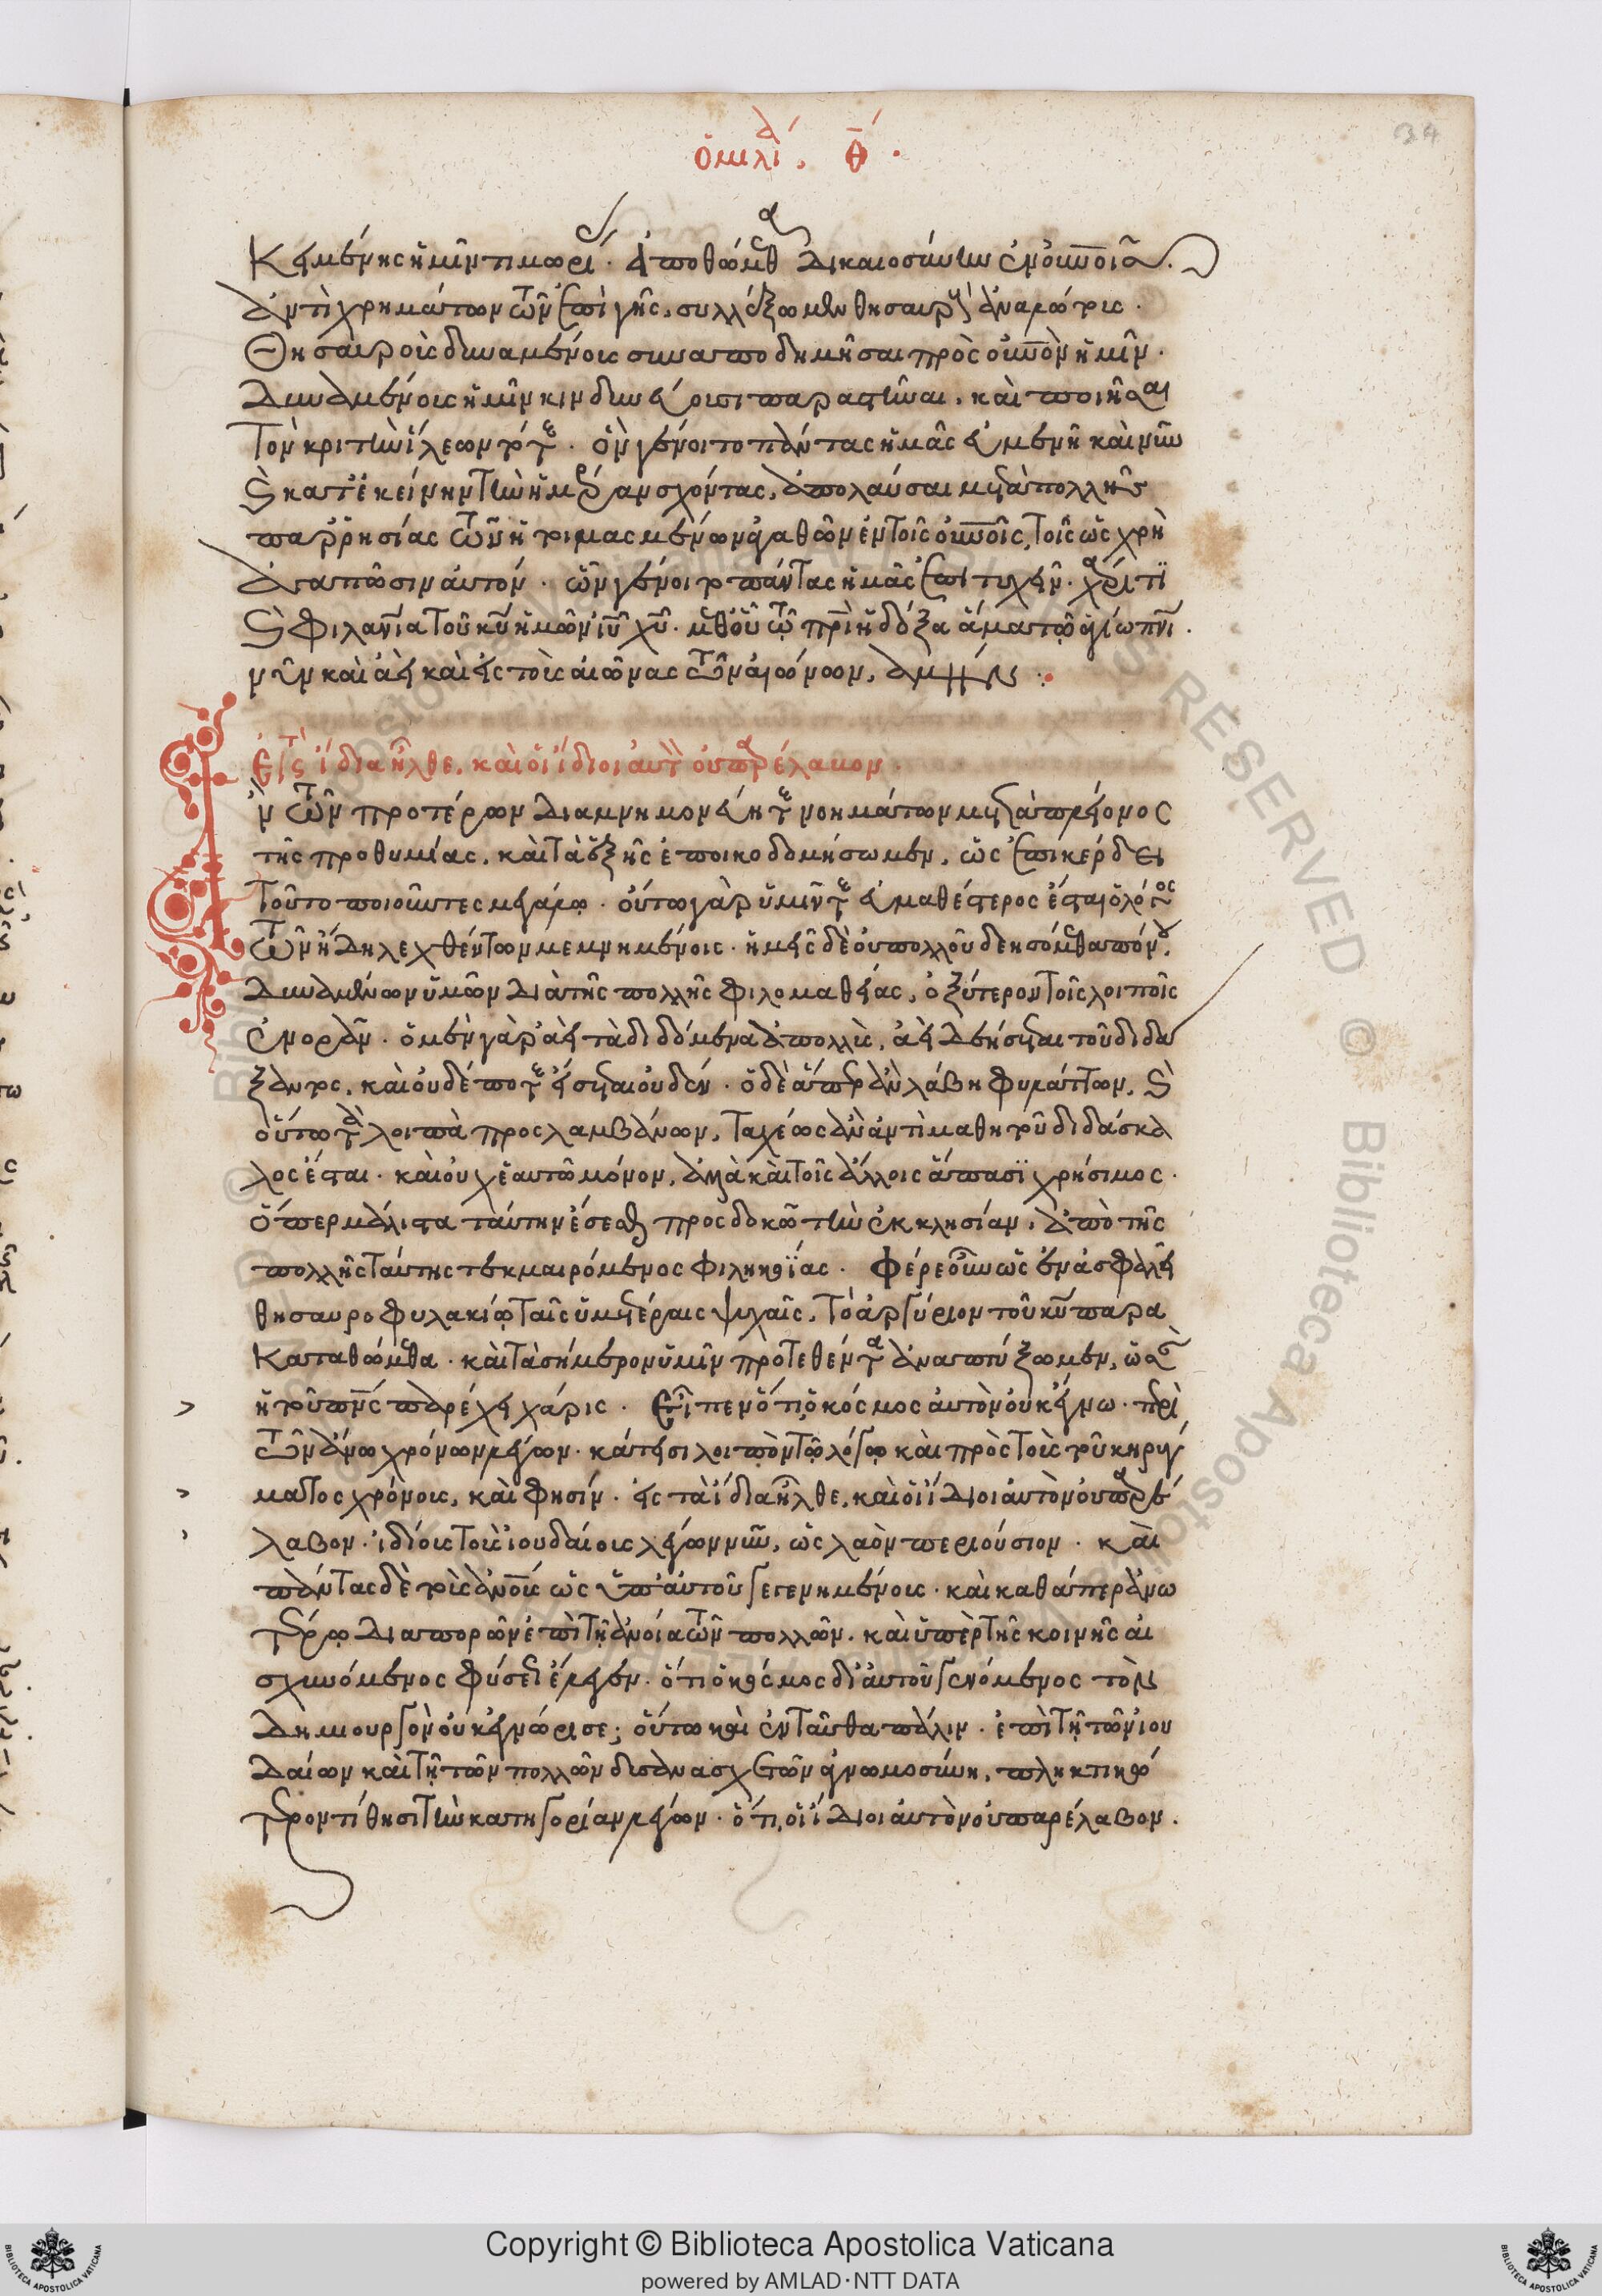 ὁμιλία θ.
34
κειμένης ἡμῖν τιμωρί. ἀποθώμεθα δικαιοσύνην ἐν οὐνοῖς.
ἀντὶ χρημάτων τῶν ἐπὶ γῆς, συλλέξωμεν θησαυροὺς ἀναλώτους.
Θησαυροὺς δυναμένους συναποδημῆσαι πρὸς οὐνὸν ἡμῖν.
Δυναμένους ἡμῖν κινδυνεύουσι παραστῆναι, καὶ ποιῆσαι
τὸν κριτὴν ἵλεων τότε. ὃν γένοιτο πάντας ἡμᾶς εὐμενῆ καὶ νῦν
καὶ κατ' ἐκείνην τὴν ἡμέραν σχόντας, ἀπολαῦσαι μετὰ πολλῆς
παρρησίας τῶν ἡτοιμασμένων ἀγαθῶν ἐν τοῖς οὐνοῖς, τοῖς ὡς χρὴ
ἀγαπῶσιν αὐτόν. ὧν γένοιτο πάντας ἡμᾶς ἐπιτυχεῖν. χάριτι
καὶ φιλανίᾳ τοῦ κυ ἡμῶν ιυ χυ. μεθ' οὗ τῷ πρὶ ἡ δόξα ἅμα τῷ ἁγίῳ πνι.
νῦν καὶ ἀεὶ καὶ εἰς τοὺς αἰῶνας τῶν αἰώνων, ἀμήν:
Εἰς τὰ ἴδια ἦλθε, καὶ οἱ ἴδιοι αὐτὸν οὐ παρέλαβον.
ἂν τῶν προτέρων διαμνημονεύητε νοημάτων μετὰ πλείονος
τῆς προθυμίας, καὶ τὰ ἑξῆς ἐποικοδομήσωμεν, ὡς ἐπὶ κέρδει
τοῦτο ποιοῦντες μεγάλῳ. οὕτω γὰρ ὑμῖν τε εὐμαθέστερος ἔσται ὁ λόγος
τῶν ἤδη λεχθέντων μεμνημένοις. ἡμεῖς δὲ οὐ πολλοῦ δεησόμεθα πόνου,
Δυναμένων ὑμῶν διὰ τῆς πολλῆς φιλομαθείας, ὀξύτερον τοῖς λοιποῖς
ἐνορᾶν. ὁ μὲν γὰρ ἀεὶ τὰ διδόμενα ἀπολλὺς, ἀεὶ δεήσεται τοῦ διδά
ξαντος, καὶ οὐδέποτε εἴσεται οὐδέν. ὁ δὲ ἅπερ ἂν λάβῃ φυλάττων, καὶ
οὕτω τὰ λοιπὰ προσλαμβάνων, ταχέως ἂν ἀντὶ μαθητοῦ διδάσκα
λος ἔσται. καὶ οὐχ ἑαυτῷ μόνον, ἀλλὰ καὶ τοῖς ἄλλοις ἅπασι χρήσιμος.
Ὅπερ μάλιστα ταύτην ἔσεσθαι προσδοκῶ τὴν ἐκκλησίαν, ἀπὸ τῆς
πολλῆς ταύτης τεκμαιρόμενος φιληκοΐας. Φέρε οὖν ὡς ἐν ἀσφαλεῖ
θησαυροφυλακίῳ ταῖς ὑμετέραις ψυχαῖς, τὸ ἀργύριον τοῦ κυ παρα
καταθώμεθα. καὶ τὰ σήμερον ὑμῖν προτεθέντα ἀναπτύξωμεν, ὡς
ἡ τοῦ πνς παρέχει χάρις. Εἶπεν ὅτι ὁ κόσμος αὐτὸν οὐκ ἔγνω. περὶ
τῶν ἄνω χρόνων λέγων. κάτεισι λοιπὸν τῷ λόγῳ καὶ πρὸς τοὺς τοῦ κηρύγ
ματος χρόνους, καὶ φησίν. εἰς τὰ ἴδια ἦλθε, καὶ οἱ ἴδιοι αὐτὸν οὐ παρέ
λαβον. ἰδίους τοὺς ἰουδαίους λέγων νῦν, ὡς λαὸν περιούσιον. καὶ
πάντας δὲ τοὺς ἀνους ὡς ὑπ' αὐτοῦ γεγενημένους. καὶ καθάπερ ἄνω
τέρω διαπορῶν ἐπὶ τῇ ἀνοίᾳ τῶν πολλῶν, καὶ ὑπὲρ τῆς κοινῆς αἰ
σχυνόμενος φύσεως ἔλεγεν. ὅτι ὁ κόσμος δι' αὐτοῦ γενόμενος τὸν
δημιουργὸν οὐκ ἐγνώρισε; οὕτω καὶ ἐνταῦθα πάλιν. ἐπὶ τῇ τῶν ἰου
δαίων καὶ τῇ τῶν πολλῶν δυσανασχετῶν ἀγνωμοσύνῃ, πληκτικώ
τερον τίθησι τὴν κατηγορίαν λέγων. ὅτι οἱ ἴδιοι αὐτὸν οὐ παρέλαβον.
Copyright © Biblioteca Apostolica Vaticana
powered by AMLAD·NTT DATA